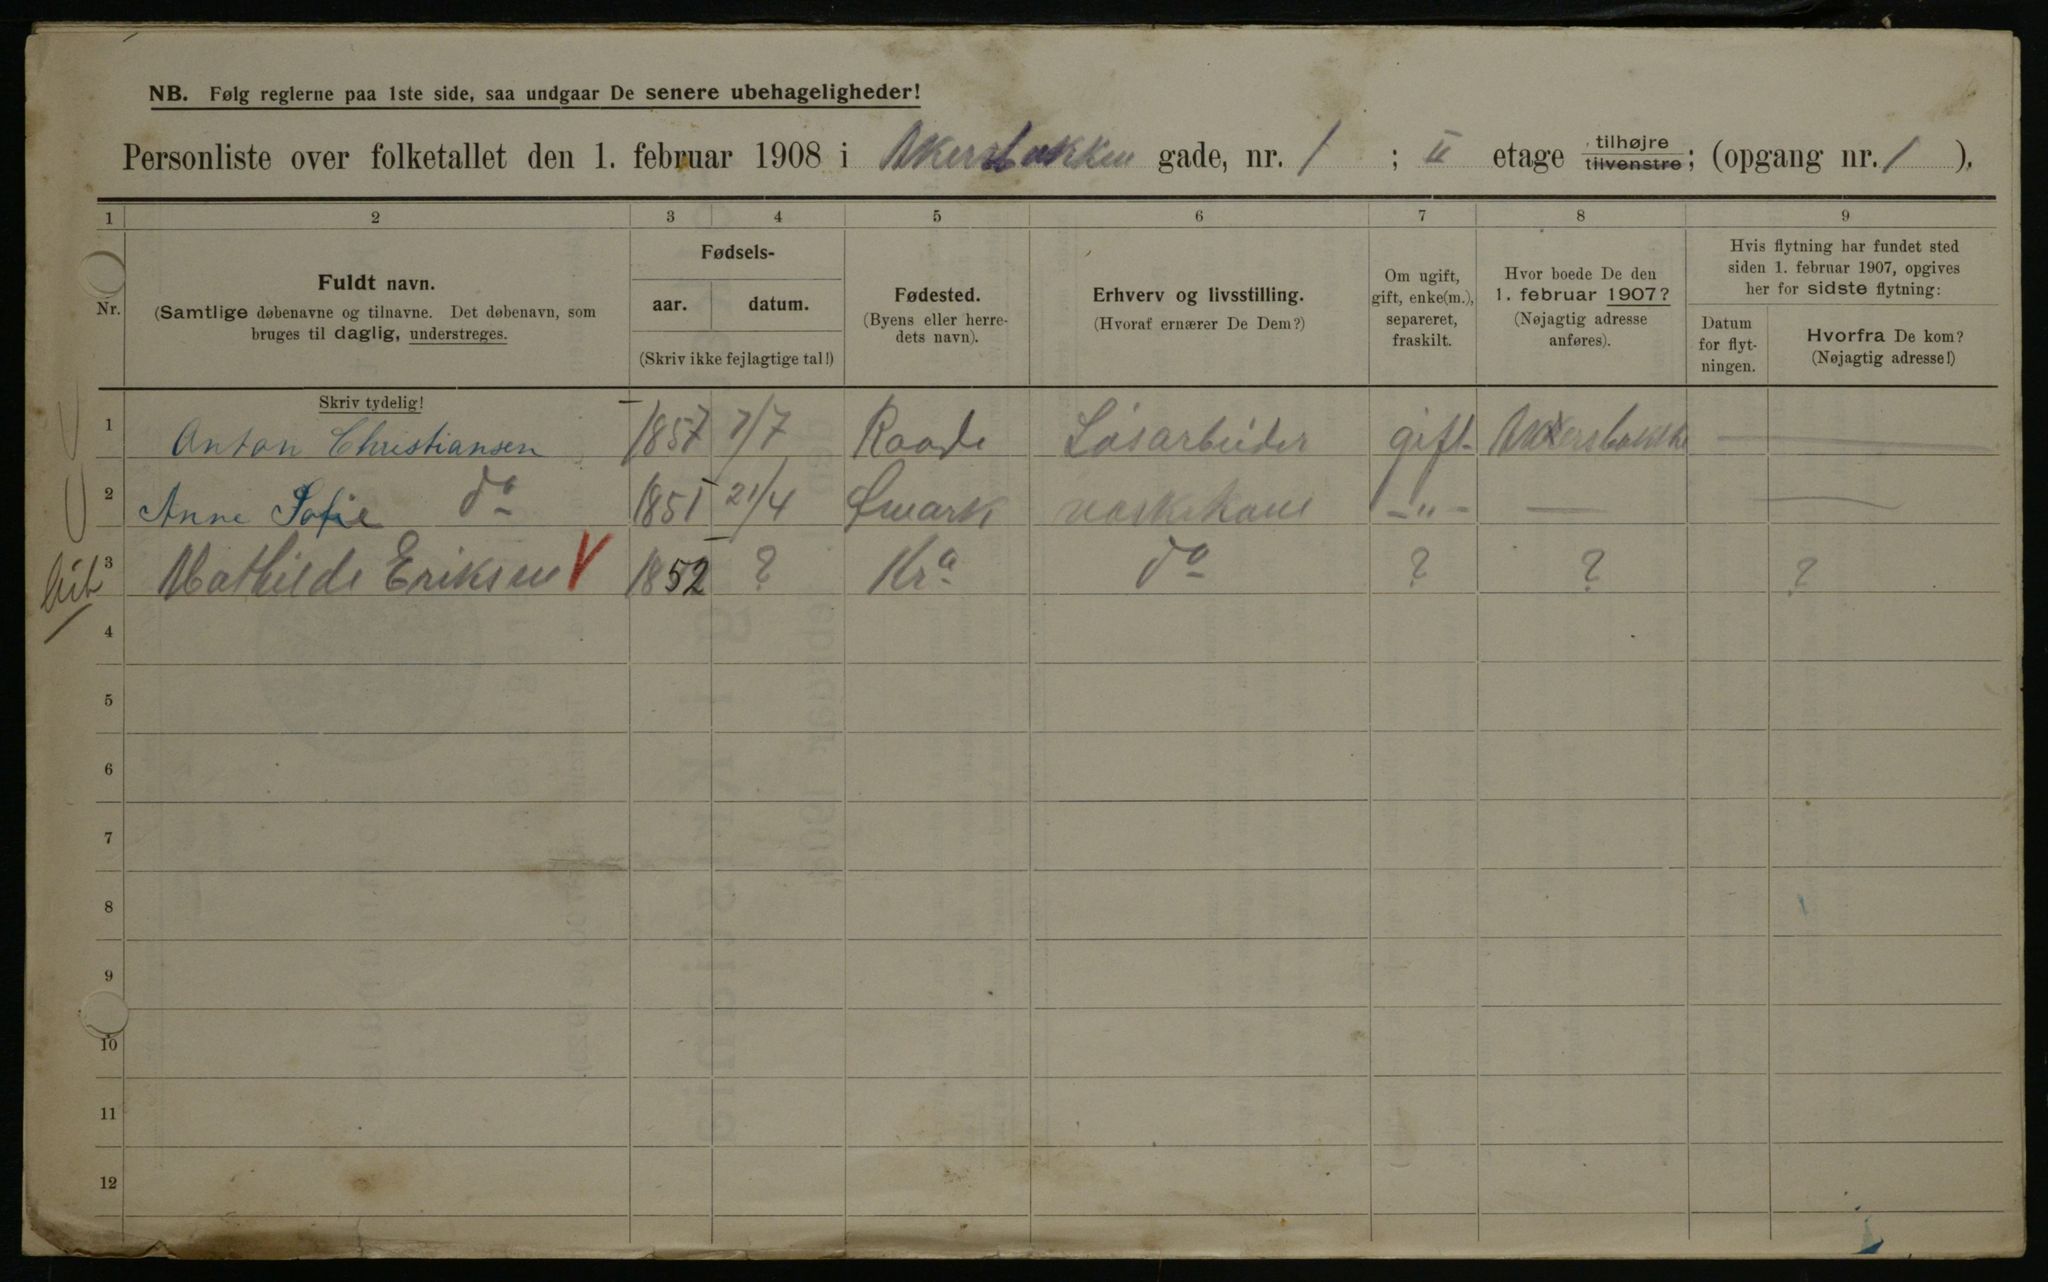 NB. Følg reglerne paa 1ste side, saa undgaar De senere ubehageligheder!
Personliste over folketallet den 1. februar 1908 i Akersbakken gade, nr. 1 ; II etage tilhøjre tilvenstre; (opgang nr. 1 ).
1 2 3 4 5 6 7 8 9
Nr.
Fuldt navn.
(Samtlige døbenavne og tilnavne. Det døbenavn, som
bruges til daglig, understreges.
Fødsels-
aar. datum.
(Skriv ikke fejlagtige tal!)
Fødested.
(Byens eller herre-
dets navn).
Erhverv og livsstilling.
(Hvoraf ernærer De Dem?)
Om ugift,
gift, enke(m.),
separeret,
fraskilt.
Hvor boede De den
1. februar 1907?
(Nøjagtig adresse
anføres).
Hvis flytning har fundet sted
siden 1. februar 1907, opgives
her for sidste flytning:
Datum
for flyt-
ningen.
Hvorfra De kom?
(Nøjagtig adresse!)
Skriv tydelig!
1 Anton Christiansen 1857 7/7 Raade Løsarbeider gift Akersbakke —
2 Anne Sofie do 1851 21/4 Ømark vaskekone -„- — —
3 Mathilde Eriksen V 1852 ? Kra do ? ? ?
4
5
6
7
8
9
10
11
12